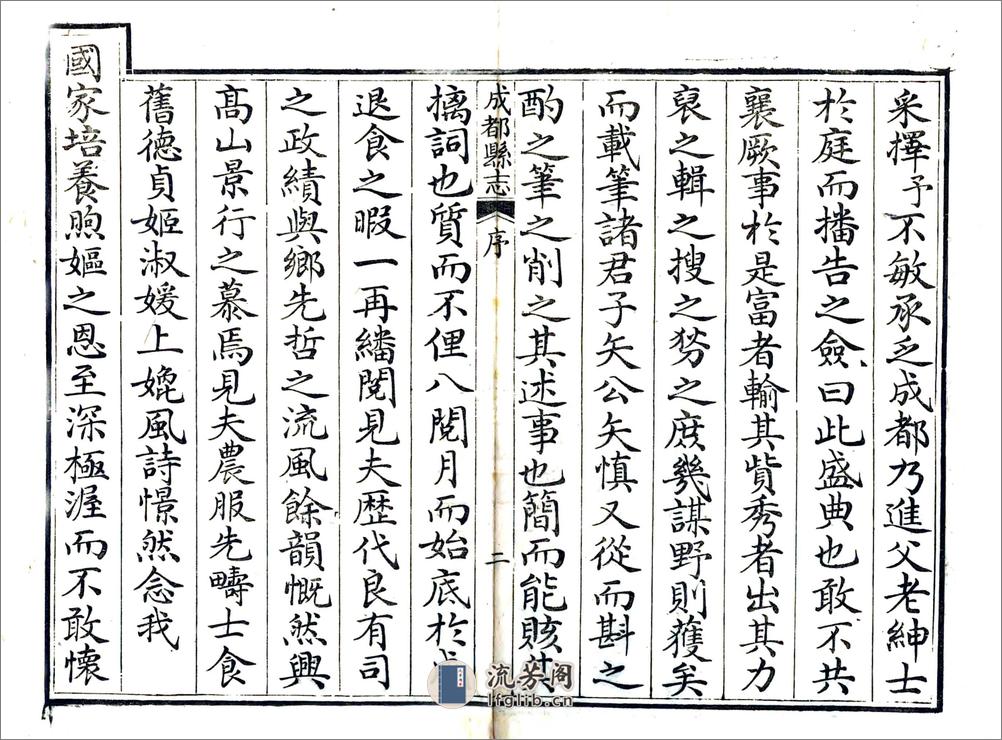 采擇予不敏承乏成都乃進父老紳士
於庭而播告之僉曰此盛典也敢不共
襄厥事於是富者輸其貲秀者出其力
裒之輯之搜之𢴄之庶幾謀野則獲矣
而載筆諸君子矢公矢慎又從而斟之
酌之筆之削之其述事也簡而能賅其
成都縣志 序 二
摛詞也質而不俚八閱月而始底於
退食之暇一再繙閱見夫歷代良有司
之政績與鄉先哲之流風餘韻慨然興
高山景行之慕焉見夫農服先疇士食
舊德貞姬淑媛上媲風詩憬然念我
國家培養煦嫗之恩至深極渥而不敢懷
流芳阁
lfglib.cn